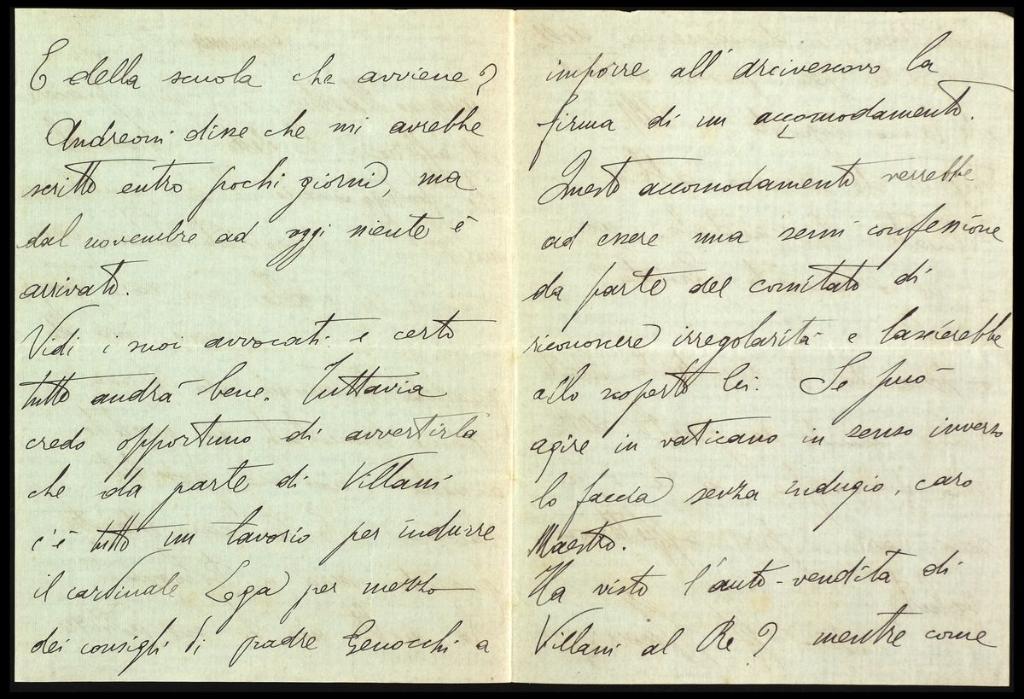 E della scuola che avviene?
Andreoni disse che mi avrebbe
scritto entro pochi giorni, ma
dal novembre ad oggi niente è
arrivato.
Vidi i suoi avvocati e certo
tutto andrà bene. Tuttavia
credo opportuno di avvertirla
che da parte di Villani
c'è tutto un lavorio per indurre
il cardinale Lega per mezzo
dei consigli di padre Genocchi a
imporre all'arcivescovo la
firma di un accomodamento.
Questo accomodamento verrebbe
ad essere una semi confessione
da parte del comitato di
riconoscere irregolarità e lascierebbe
allo scoperto lei. Se può
agire in vaticano in senso inverso
lo faccia senza indugio, caro
Maestro.
Ha visto l'auto-vendita di
Villani al Re? mentre come